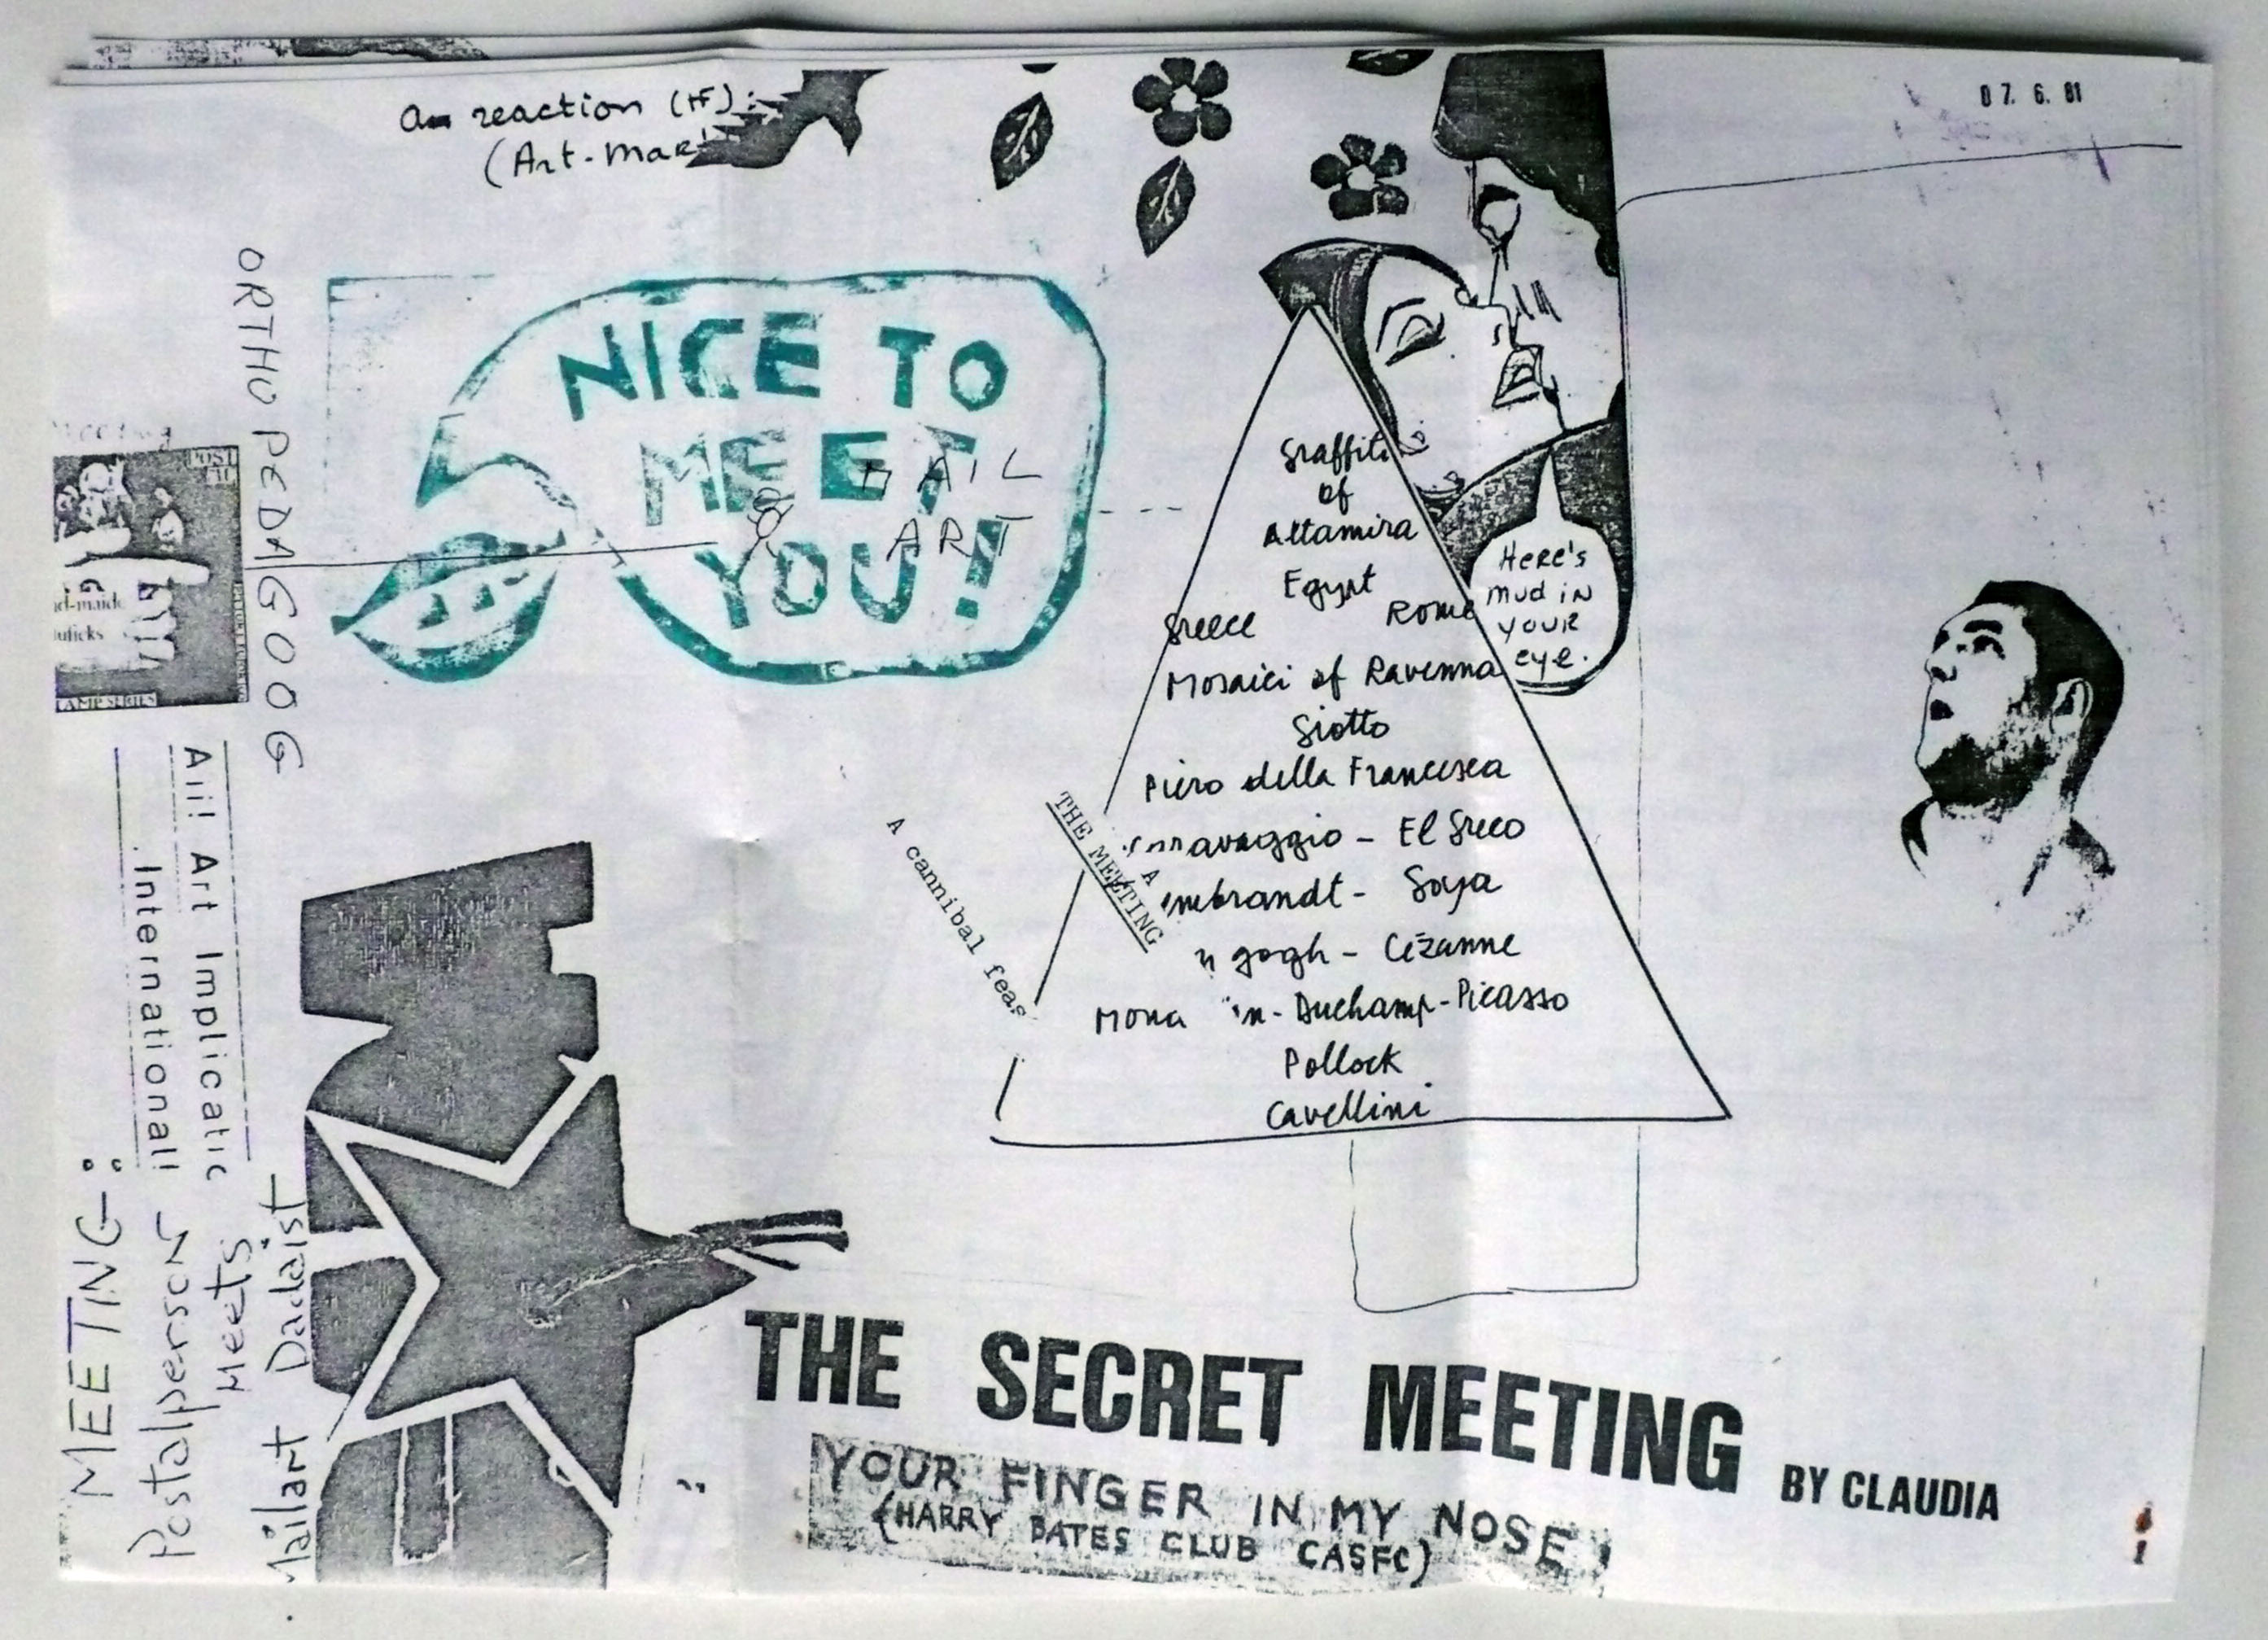 reaction (HF):
(Art-Mar
07. 6. 81
ORTHOPEDAGOOG
NICE TO
MEET
YOU!
MAIL
ART
POST
AMP SERIES
Here's
mud in
your
eye.
Graffiti
of
Altamira
Egypt
Greece Rome
Mosaici of Ravenna
Giotto
Piero della Francesca
aravaggio - El Greco
mbrandt - Goya
n gogh - Cézanne
Mona in - Duchamp - Picasso
Pollock
Cavellini
THE MEETING
A
A cannibal feas
MEETING:
Postalperson
Meets
Mailart Dadaist
Ai! Art Implicatic
Internationali
THE SECRET MEETING BY CLAUDIA
YOUR FINGER IN MY NOSE
(HARRY BATES CLUB CASFC)